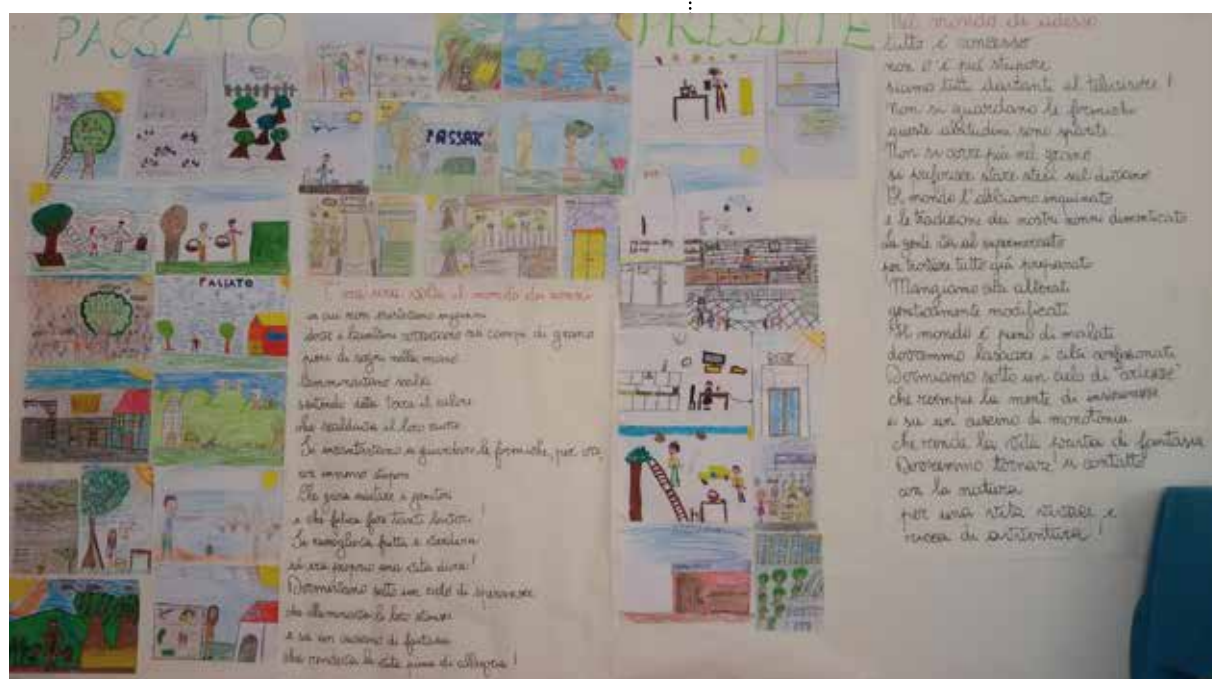 PASSATO
PRESENTE
PASSATO
PASSATO
C'era una volta il mondo dei nonni
in cui non c'erano inganni
dove i bambini correvano nei campi di grano
pieni di sogni nella mano
Camminavano scalzi
sentendo della terra il calore
che scaldava il loro cuore
Si incantavano a guardare le formiche, per ore,
con immenso stupore
Che gioia aiutare i genitori
e che felicità fare tanti lavori!
Si raccoglieva frutta e verdura
ed era proprio una vita dura!
Dormivano sotto un cielo di speranze
che illuminava le loro stanze
e su un cuscino di fantasia
che rendeva la vita piena di allegria!
Nel mondo di adesso
tutto è concesso
non c'è più stupore
siamo tutti davanti al televisore!
Non si guardano le formiche
queste abitudini sono sparite.
Non si corre più nel grano
si preferisce stare stesi sul divano
Il mondo l'abbiamo inquinato
e le tradizioni dei nostri nonni dimenticato
La gente va al supermercato
per trovare tutto già preparato
Mangiamo cibi alterati
geneticamente modificati
Il mondo è pieno di malati
dovremmo lasciare i cibi confezionati
Dormiamo sotto un cielo di
che riempie la mente di insicurezze
e su un cuscino di monotonia
che rende la vita vuota di fantasia
Dovremmo tornare a contatto
con la natura
per una vita vivace e
ricca di avventura!